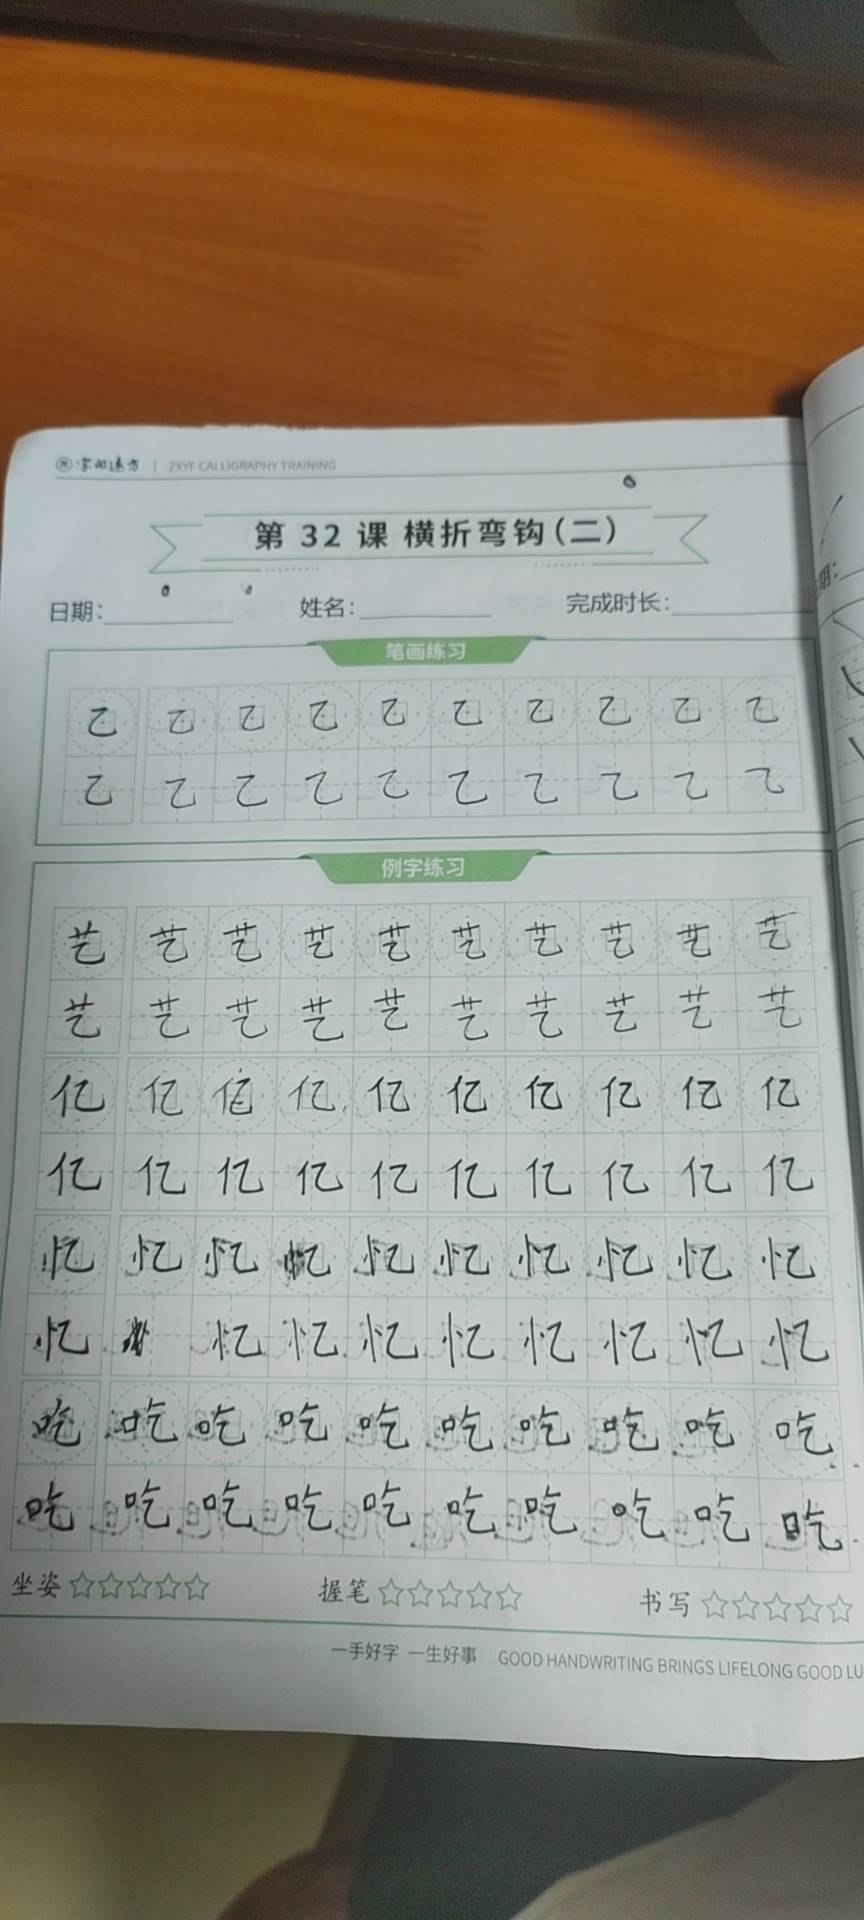 字向远方 ZXYF CALLIGRAPHY TRAINING
第 32 课 横折弯钩(二)
日期: 姓名: 完成时长:
笔画练习
乙 乙 乙 乙 乙 乙 乙 乙 乙 乙
乙 乙 乙 乙 乙 乙 乙 乙 乙 乙
例字练习
艺 艺 艺 艺 艺 艺 艺 艺 艺 艺
艺 艺 艺 艺 艺 艺 艺 艺 艺 艺
亿 亿 亿 亿 亿 亿 亿 亿 亿 亿
亿 亿 亿 亿 亿 亿 亿 亿 亿 亿
忆 忆 忆 忆 忆 忆 忆 忆 忆 忆
忆 忆 忆 忆 忆 忆 忆 忆 忆
吃 吃 吃 吃 吃 吃 吃 吃 吃 吃
吃 吃 吃 吃 吃 吃 吃 吃 吃 吃
坐姿 ☆☆☆☆☆ 握笔 ☆☆☆☆☆ 书写 ☆☆☆☆☆
一手好字 一生好事 GOOD HANDWRITING BRINGS LIFELONG GOOD LU
期: